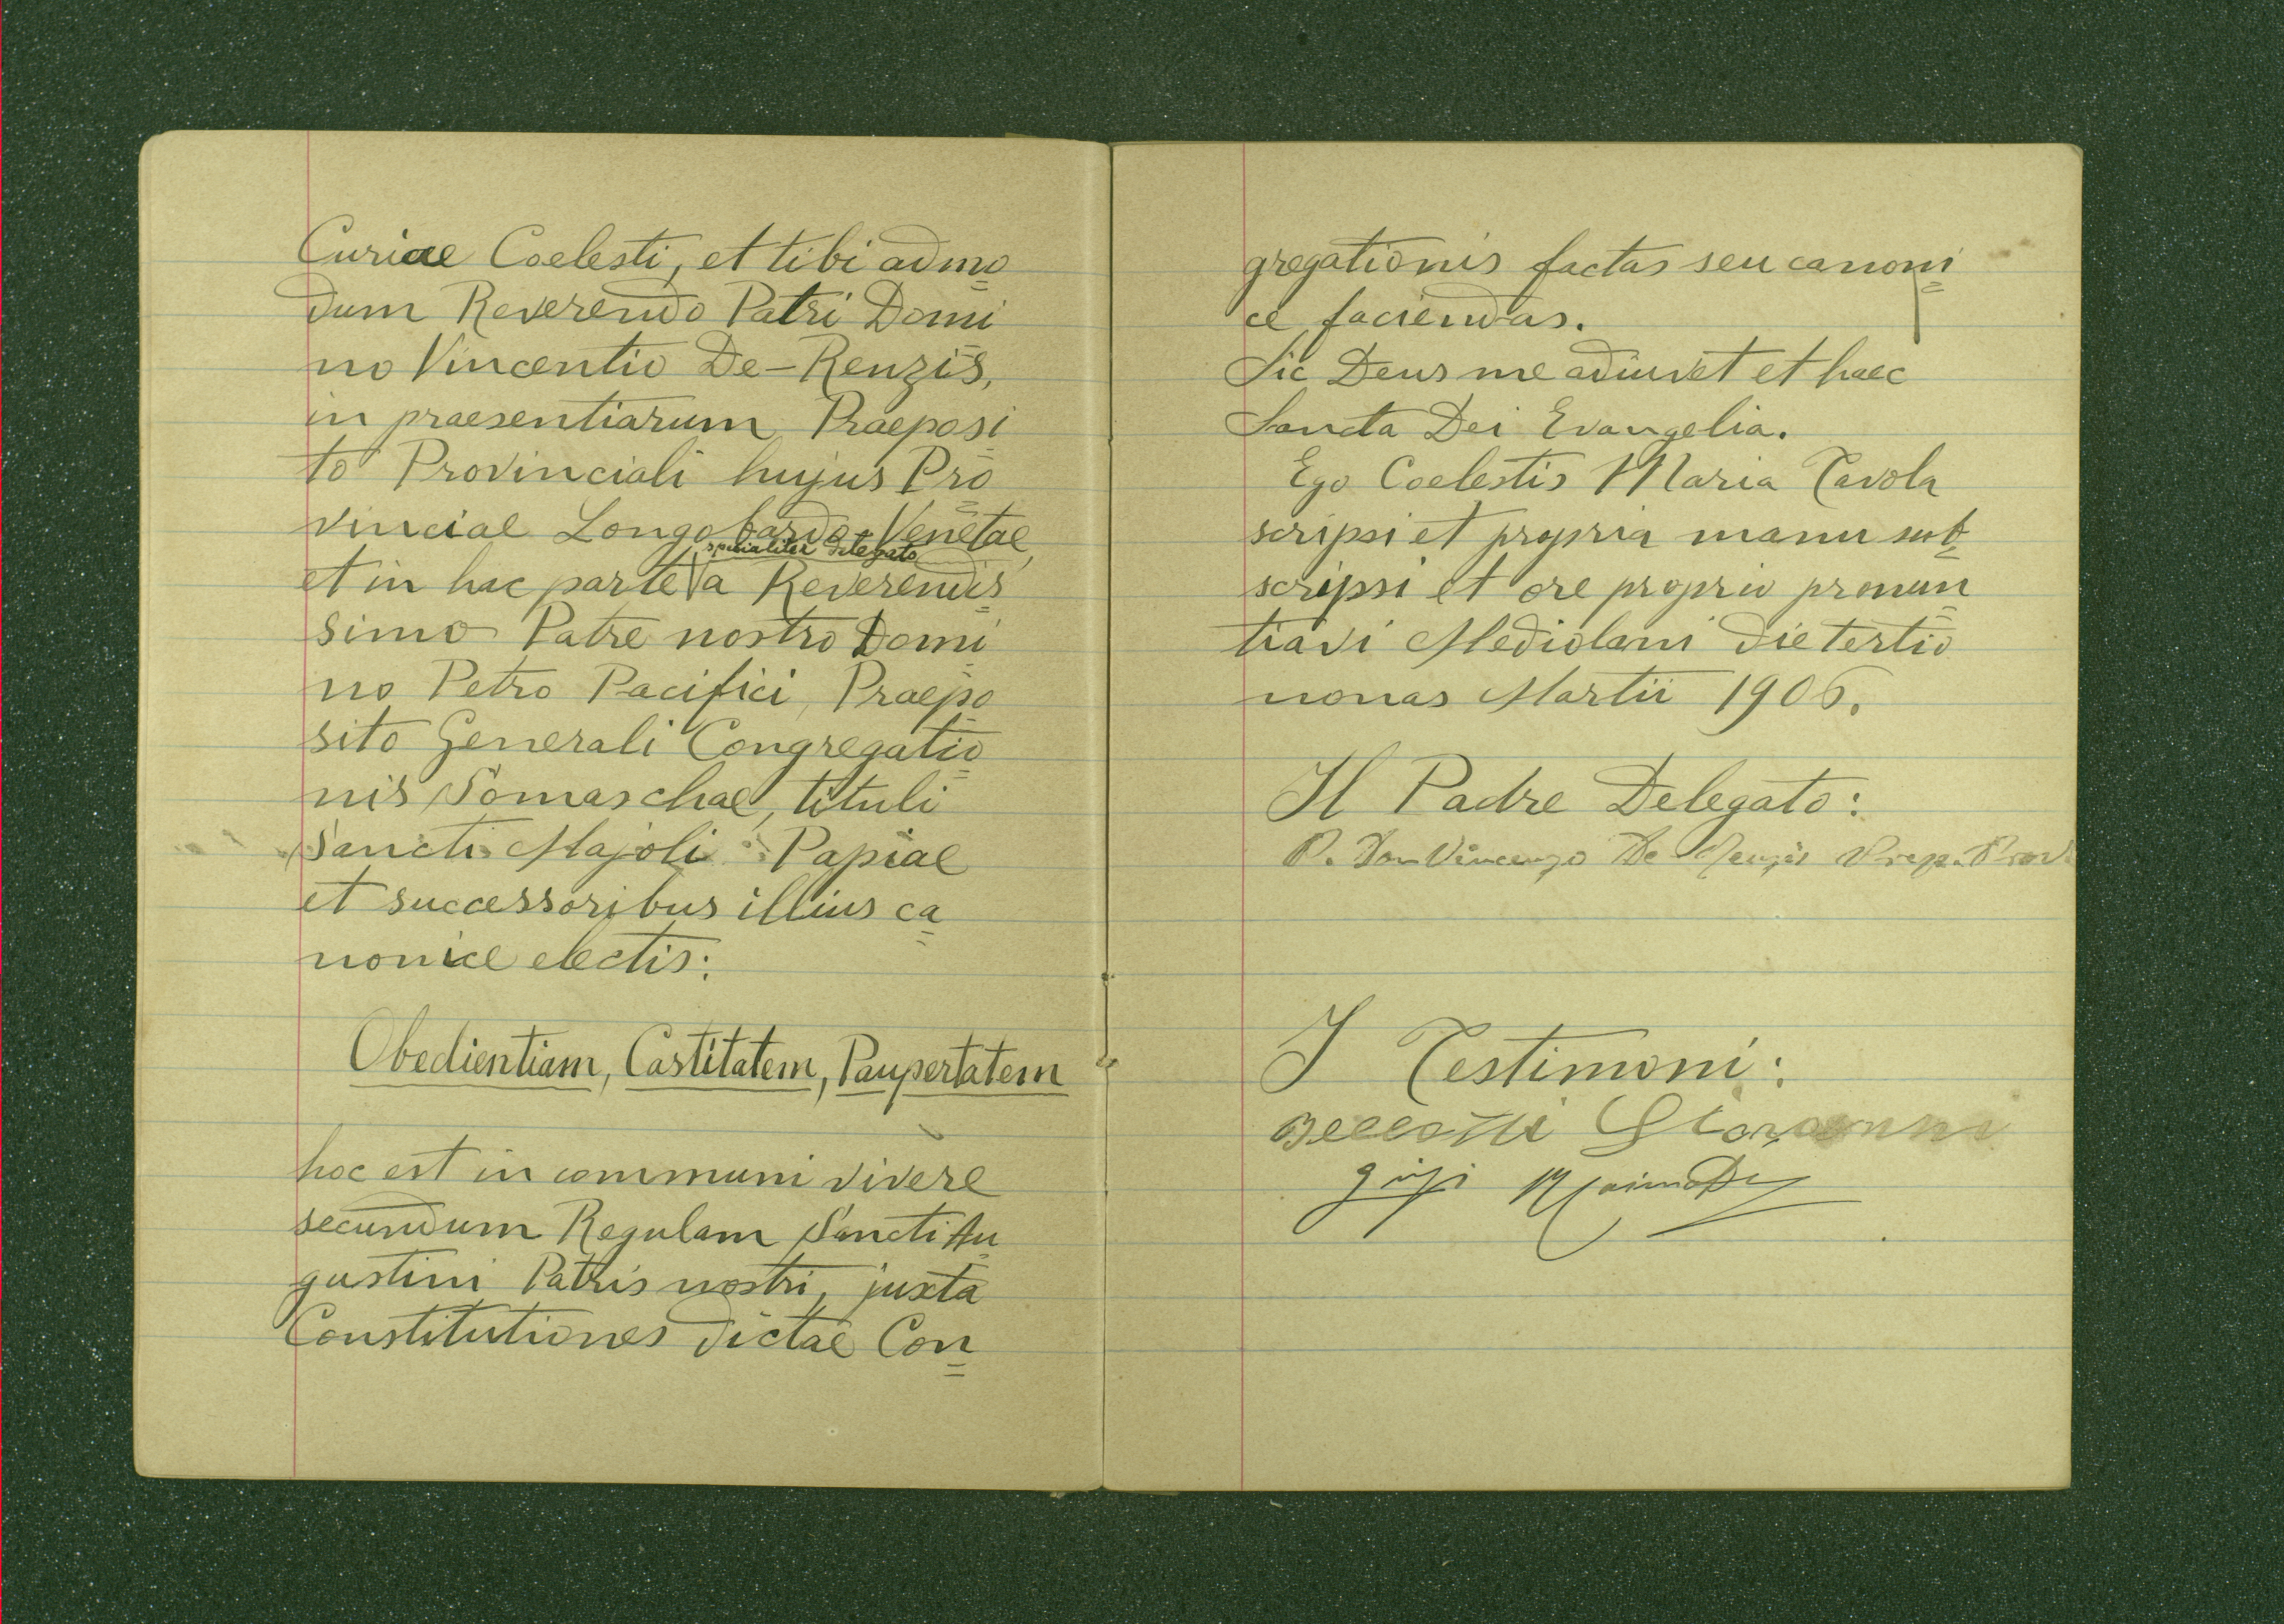 Curiae Coelesti, et tibi admo=
dum Reverendo Patri Domi=
no Vincentio De-Renzis,
in praesentiarum Praeposi=
to Provinciali hujus Pro=
vinciae Longobardo-Venetae,
specialiter delegato
et in hac parte a Reverendis=
simo Patre nostro Domi=
no Petro Pacifici, Praepo=
sito Generali Congregatio=
nis Somaschae, tituli
Sancti Majoli Papiae
et successoribus illius ca=
nonice electis:
Obedientiam, Castitatem, Paupertatem
hoc est in communi vivere
secundum Regulam Sancti Au=
gustini Patris nostri, juxta
Constitutiones dictae Con=
gregationis factas seu canoni=
ce faciendas.
Sic Deus me adiuvet et haec
Sancta Dei Evangelia.
Ego Coelestis Maria Tavola
scripsi et propria manu sub=
scripsi et ore proprio pronun=
tiavi Mediolani die tertio
nonas Martii 1906.
Il Padre Delegato:
P. Don Vincenzo De-Renzis Prep. Prov.
I Testimoni:
Giovanni